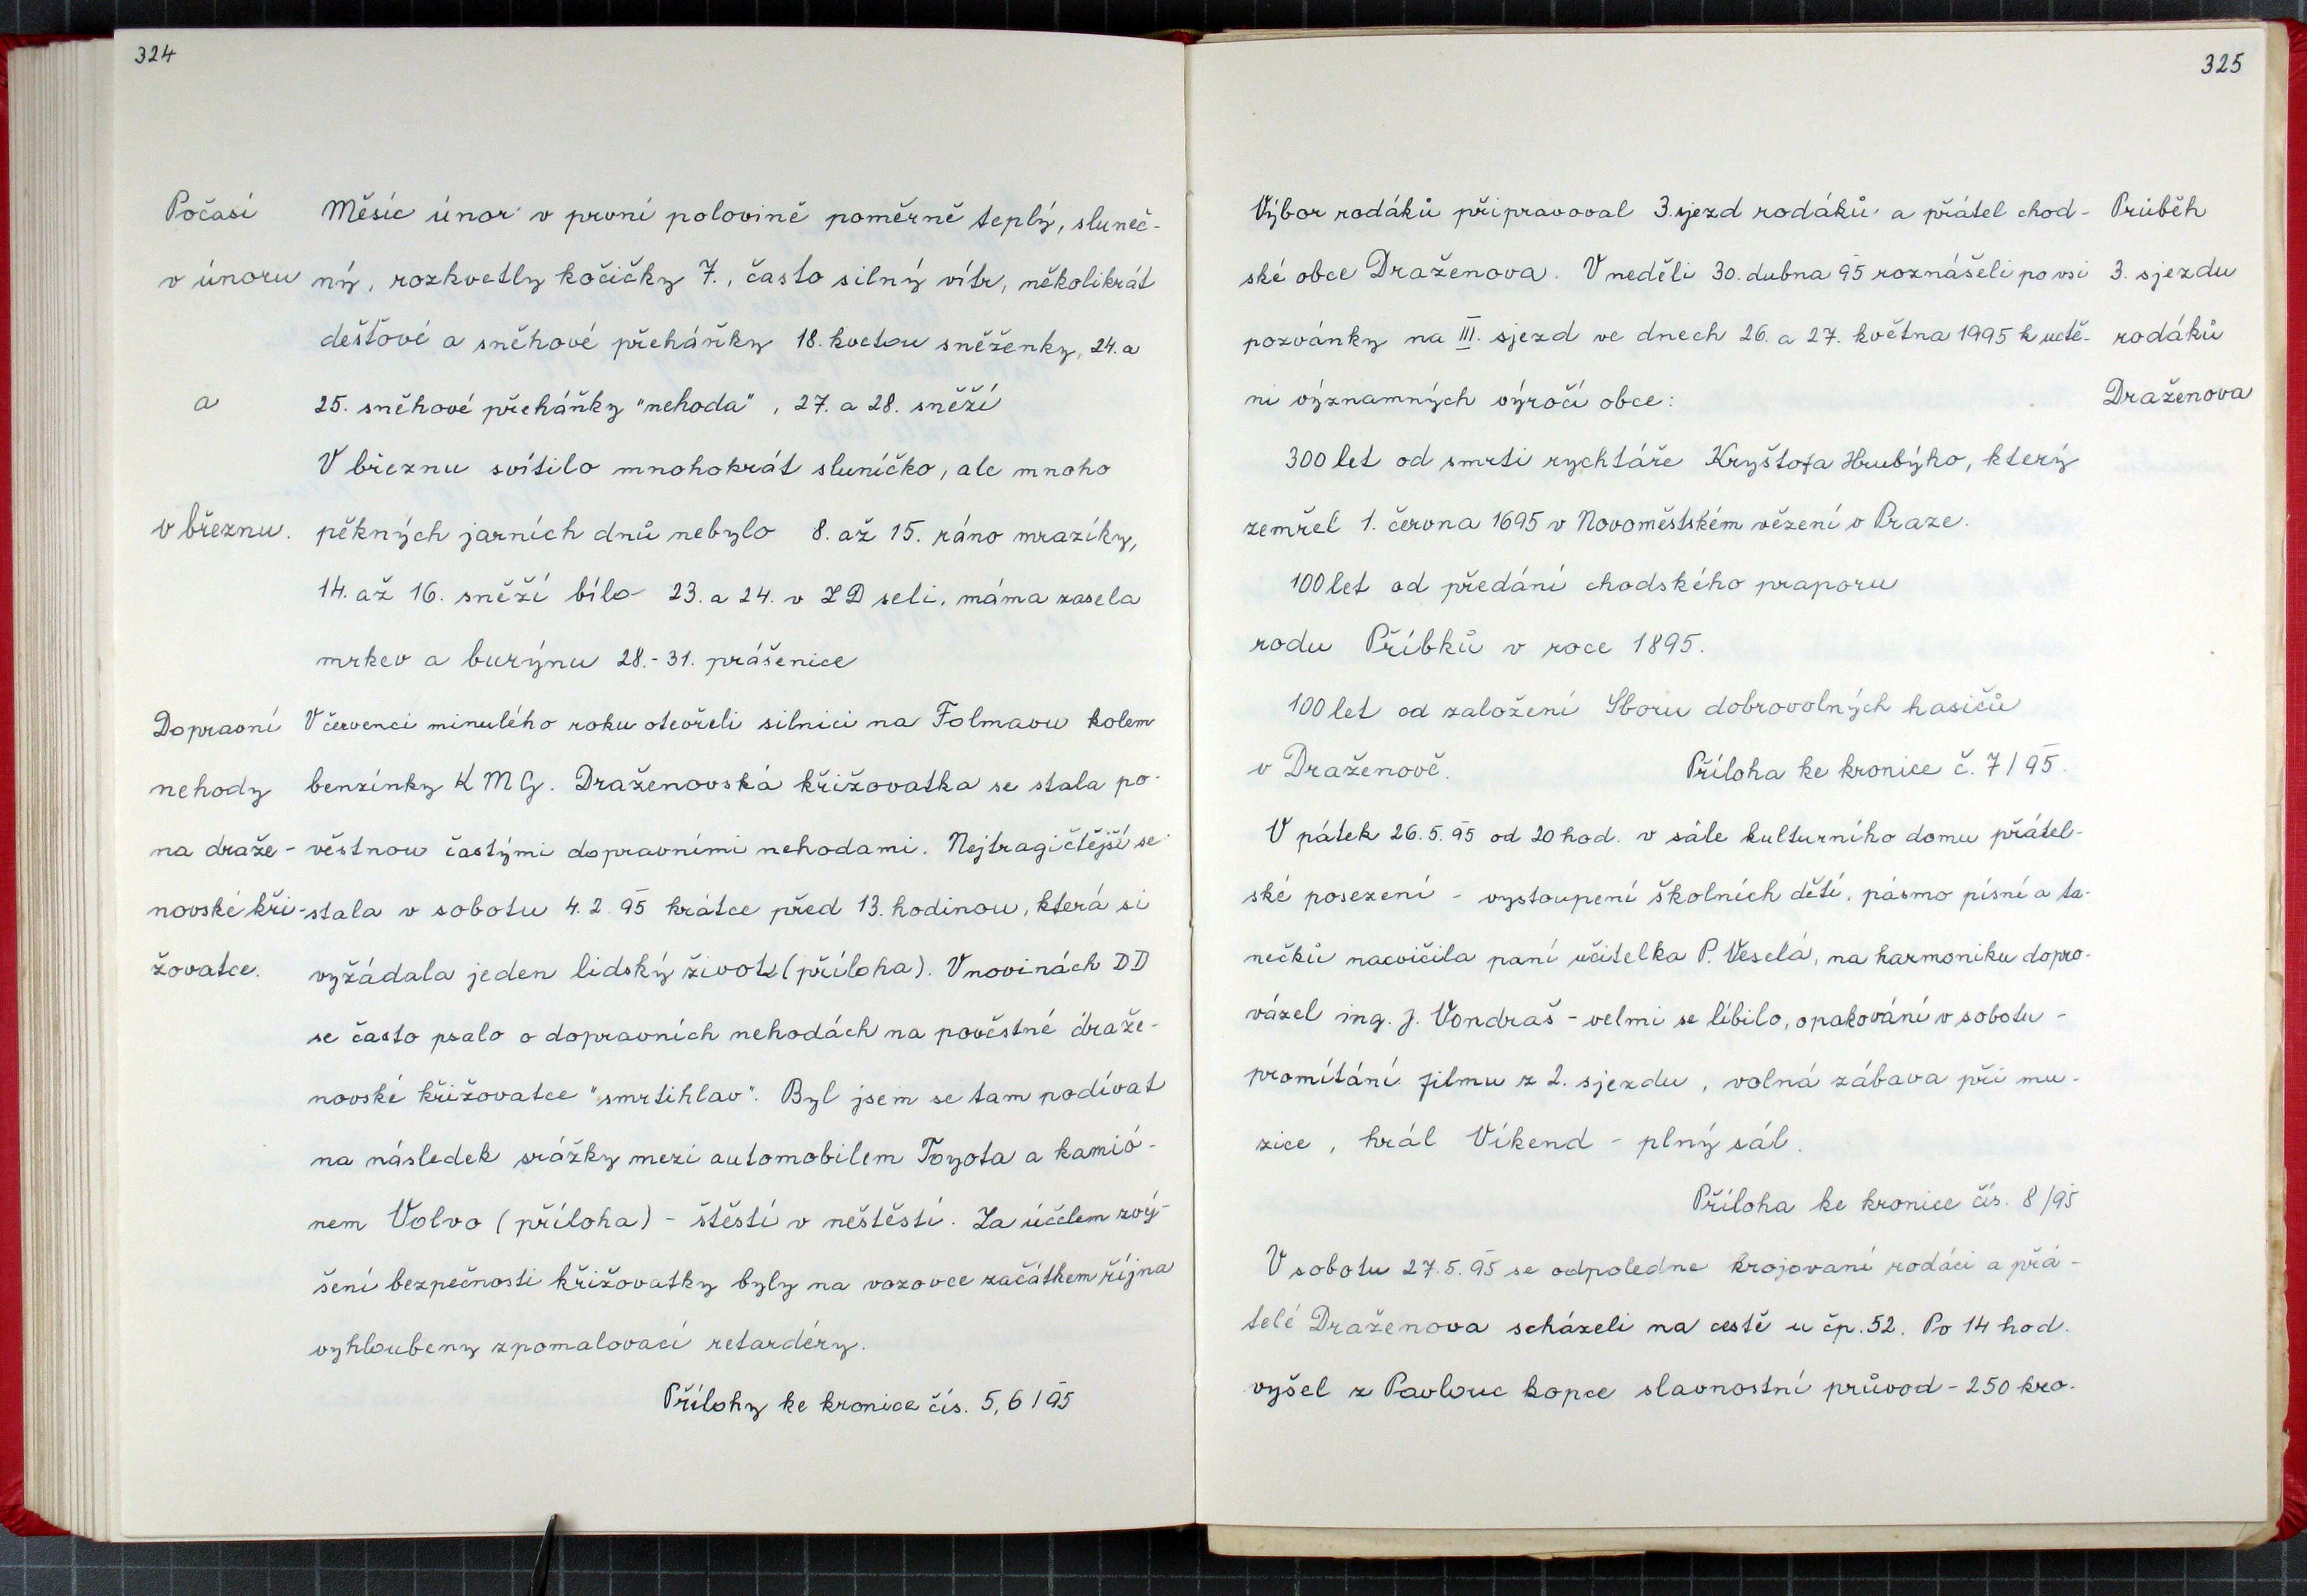 324
Počasí
v únoru
a
v březnu.
Měsíc únor v první polovině poměrně teplý, sluneč-
ný, rozkvetly kočičky 7., často silný vítr, několikrát
dešťové a sněhové přeháňky 18. kvetou sněženky, 24. a
25. sněhové přeháňky "nehoda", 27. a 28. sněží
V březnu svítilo mnohokrát sluníčko, ale mnoho
pěkných jarních dnů nebylo 8. až 15. ráno mrazíky,
14. až 16. sněží bílo 23. a 24. v ZD seli, máma zasela
mrkev a burýnu 28.-31. prášenice
Dopravní
nehody
na draže-
novské kři-
žovatce.
V červenci minulého roku otevřeli silnici na Folmavu kolem
benzínky KMG. Draženovská křižovatka se stala po-
věstnou častými dopravními nehodami. Nejtragičtější se
stala v sobotu 4.2.95 krátce před 13. hodinou, která si
vyžádala jeden lidský život (příloha). V novinách DD
se často psalo o dopravních nehodách na pověstné draže-
novské křižovatce "smrtihlav". Byl jsem se tam podívat
na následek srážky mezi automobilem Toyota a kamió-
nem Volvo (příloha) - štěstí v neštěstí. Za účelem zvý-
šení bezpečnosti křižovatky byly na vozovce začátkem října
vyhloubeny zpomalovací retardéry.
Přílohy ke kronice čís. 5,6/95
325
Průběh
3. sjezdu
rodáků
Draženova
Výbor rodáků připravoval 3. sjezd rodáků a přátel chod-
ské obce Draženova. V neděli 30. dubna 95 roznášeli po vsi
pozvánky na III. sjezd ve dnech 26. a 27. května 1995 k uctě-
ní významných výročí obce:
300 let od smrti rychtáře Kryštofa Hrubýho, který
zemřel 1. června 1695 v Novoměstském vězení v Praze.
100 let od předání chodského praporu
rodu Příbků v roce 1895.
100 let od založení Sboru dobrovolných hasičů
v Draženově. Příloha ke kronice č. 7/95.
V pátek 26.5.95 od 20 hod. v sále kulturního domu přátel-
ské posezení - vystoupení školních dětí, pásmo písní a ta-
nečků nacvičila paní učitelka P. Veselá, na harmoniku dopro-
vázel ing. J. Vondraš - velmi se líbilo, opakování v sobotu -
promítání filmu z 2. sjezdu, volná zábava při mu-
zice, hrál Víkend - plný sál.
Příloha ke kronice čís. 8/95
V sobotu 27.5.95 se odpoledne krojovaní rodáci a přá-
telé Draženova scházeli na cestě u čp. 52. Po 14 hod.
vyšel z Pavlouc kopce slavnostní průvod - 250 kro-